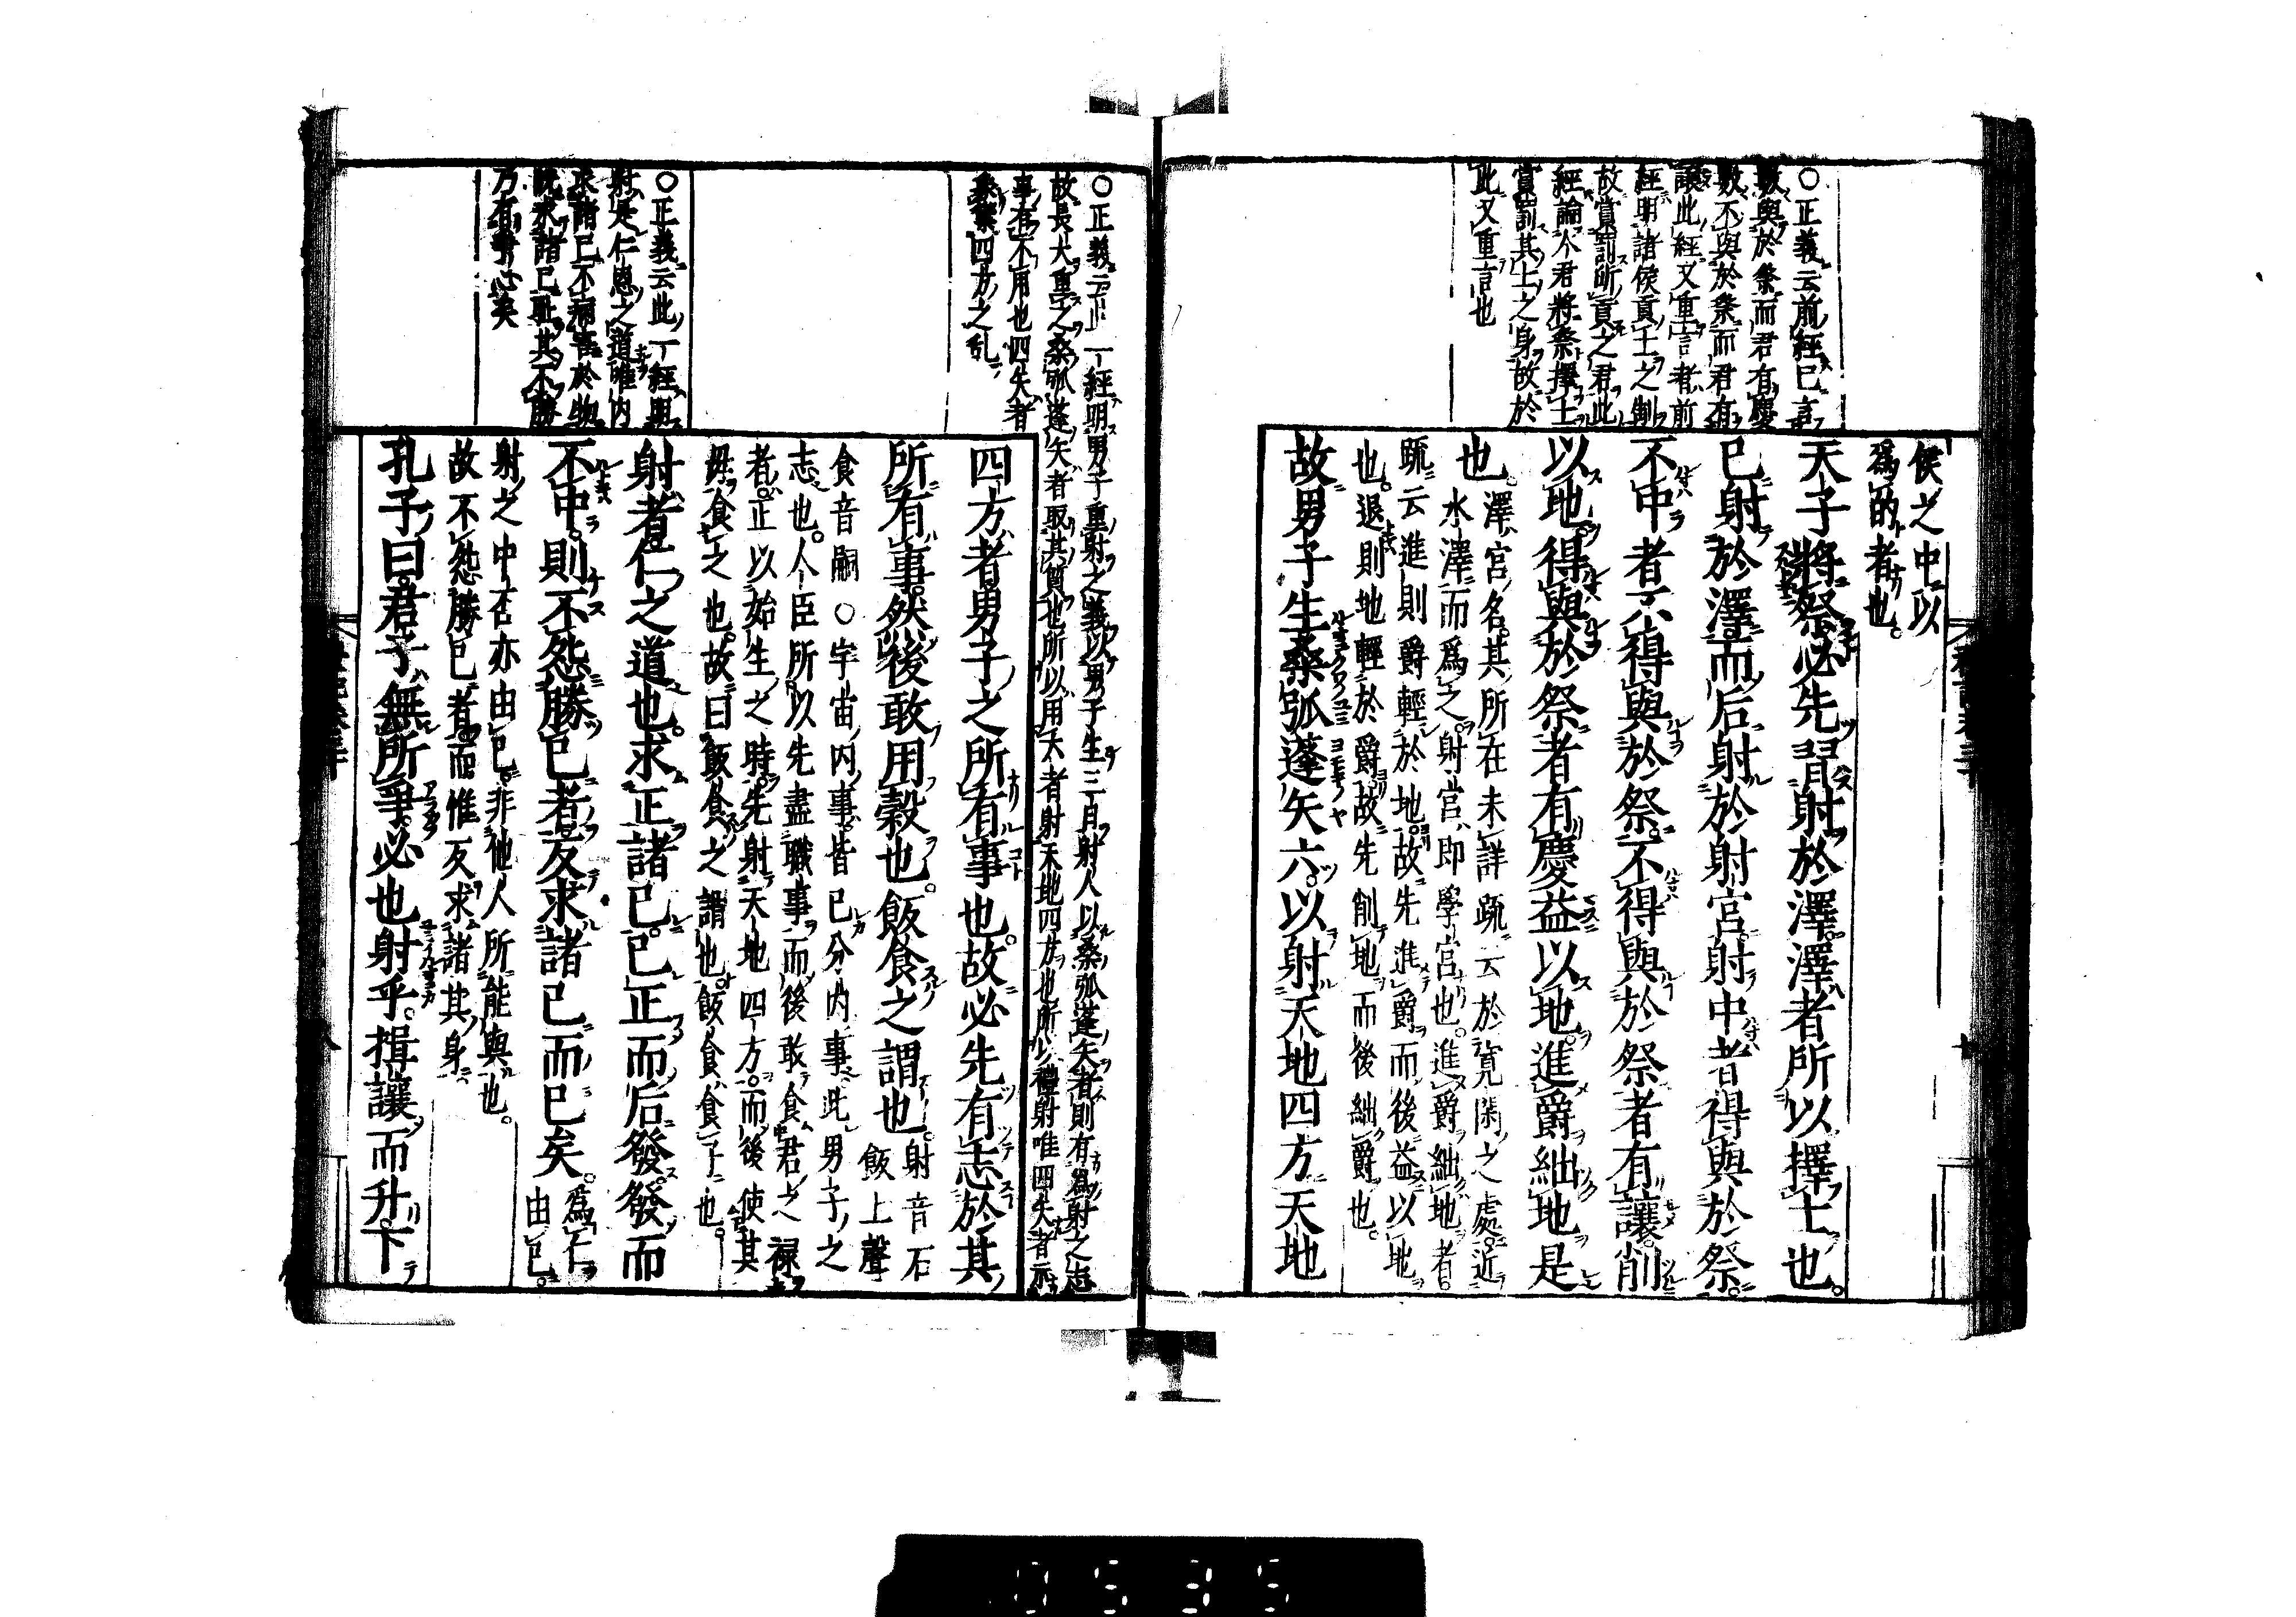 ○正義云前經已言
數與於祭而君有慶
數不與於祭而君有
讓此經又重言者前
經明諸侯貢士之制
故賞罰所貢之君此
經論人君將祭擇士
賞罰其士之身故於
此又重言也
侯之中以
爲的者也。
天子將祭必先習射於澤。澤者所以擇士也。
已射於澤而后射於射宮。射中者得與於祭。
不中者不得與於祭。不得與於祭者有讓。削
以地。得與於祭者有慶益以地。進爵絀地是
也。
澤宮名。其所在未詳疏云於寬閑之處。近
水澤而爲之。射宮即學宮也。進爵絀地者。
疏云進則爵輕於地。故先進爵而後益以地
也。退則地輕於爵。故先削地而後絀爵也。
故男子生桑弧蓬矢六。以射天地四方天地
○正義云此一經明男子重射之義以男子生三日射人以桑弧蓬矢者則有爲射之志
故長大重之桑弧蓬矢者取其質也所以用六者射天地四方也所以禮射唯四矢者示
事有不用也四矢者
象禦四方之乱
四方者男子之所有事也。故必先有志於其
所有事。然後敢用穀也。飯食之謂也。
射音石
飯上聲
食音嗣○宇宙内事皆已分内事。此男子之
志也。人臣所以先盡職事而後敢食君之祿
者。正以始生之時。先射天地四方。而後使其
母食之也。故曰飯食之謂也。飯食食子也。
○正義云此一經明
射是仁恩之道唯内
求諸己不病害於物
既求諸己耻其不勝
乃有爭心矣
射者仁之道也。求正諸己。己正而后發。發而
不中。則不怨勝己者。反求諸己而已矣。
爲仁
由己。
射之中否亦由己。非他人所能與也。
故不怨勝己者。而惟反求諸其身。
孔子曰。君子無所爭。必也射乎。揖讓而升下